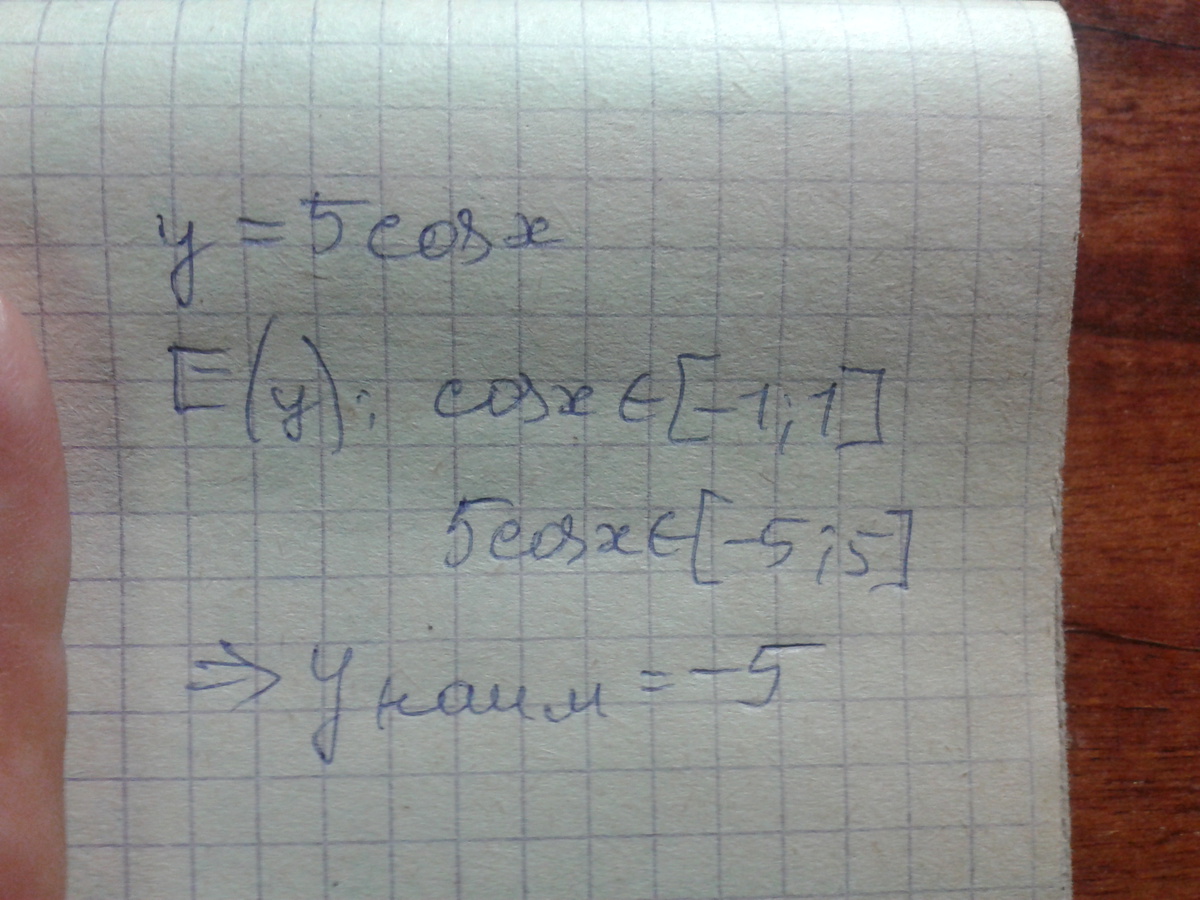 y = 5cosx
E(y): cosx ∈ [-1; 1]
5cosx ∈ [-5; 5]
⇒ y наим = -5